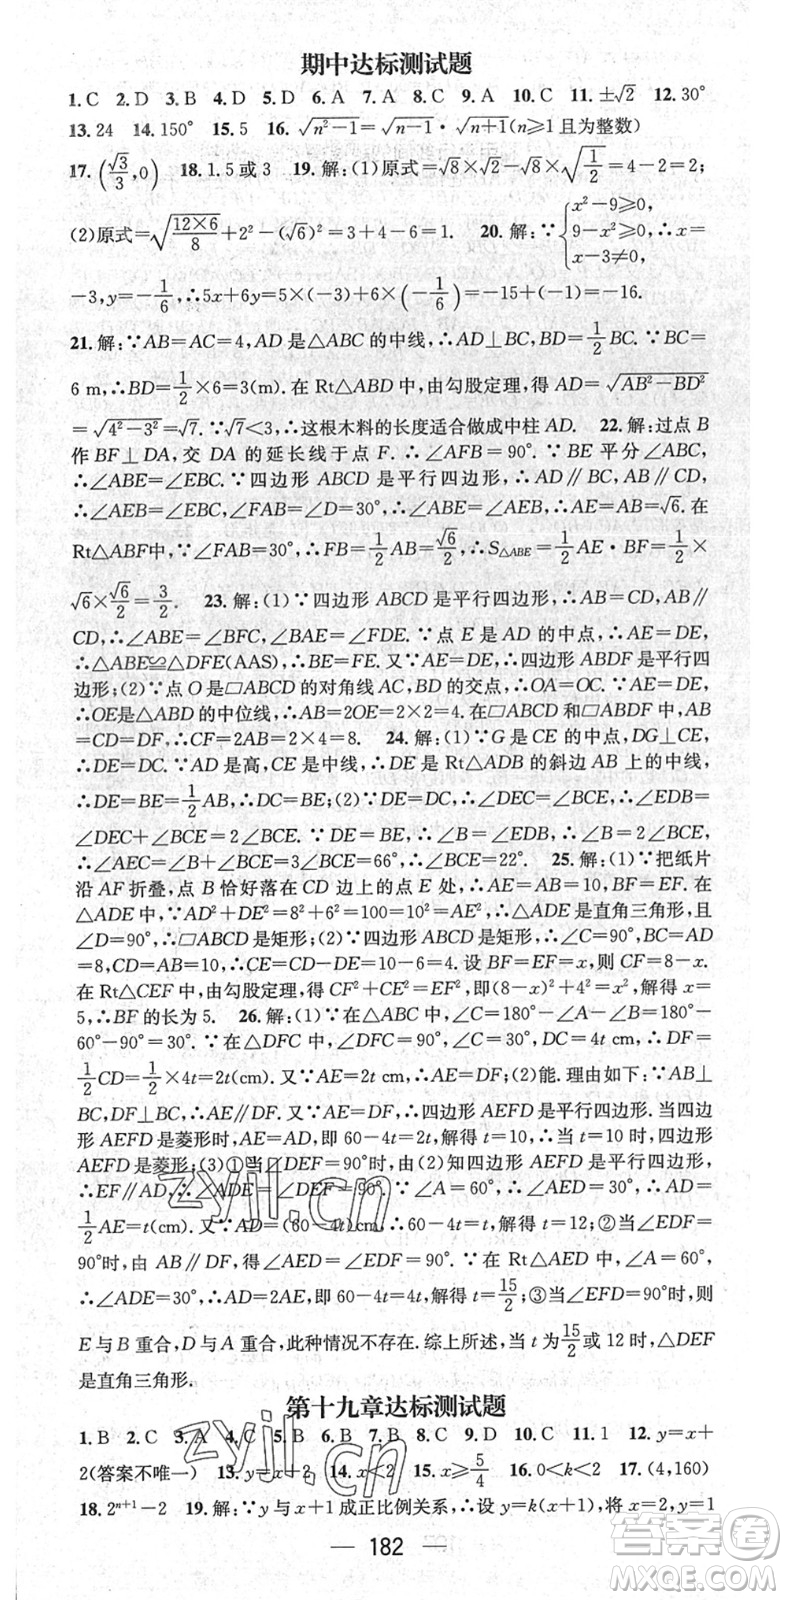 期中达标测试题
1. C 2. D 3. B 4. D 5. D 6. A 7. A 8. C 9. A 10. C 11. ±√2 12. 30°
13. 24 14. 150° 15. 5 16. √(n²-1)=√(n-1)·√(n+1)(n≥1且为整数)
17. (√3/3,0) 18. 1.5或3 19. 解:(1)原式=√8×√2-√8×√(1/2)=4-2=2;
(2)原式=√(12×6/8)+2²-(√6)²=3+4-6=1. 20. 解:∵{x²-9≥0, 9-x²≥0, x-3≠0, ∴x=
-3,y=-1/6,∴5x+6y=5×(-3)+6×(-1/6)=-15+(-1)=-16.
21. 解:∵AB=AC=4,AD是△ABC的中线,∴AD⊥BC,BD=1/2BC. ∵BC=
6 m,∴BD=1/2×6=3(m). 在Rt△ABD中,由勾股定理,得AD=√(AB²-BD²)
=√(4²-3²)=√7. ∵√7<3,∴这根木料的长度适合做成中柱AD. 22. 解:过点B
作BF⊥DA,交DA的延长线于点F. ∴∠AFB=90°. ∵BE平分∠ABC,
∴∠ABE=∠EBC. ∵四边形ABCD是平行四边形,∴AD∥BC,AB∥CD,
∴∠AEB=∠EBC,∠FAB=∠D=30°,∴∠ABE=∠AEB,∴AE=AB=√6. 在
Rt△ABF中,∵∠FAB=30°,∴FB=1/2AB=√6/2,∴S△ABE=1/2AE·BF=1/2×
√6×√6/2=3/2. 23. 解:(1)∵四边形ABCD是平行四边形,∴AB=CD,AB∥
CD,∴∠ABE=∠BFC,∠BAE=∠FDE. ∵点E是AD的中点,∴AE=DE,
∴△ABE≌△DFE(AAS),∴BE=FE. 又∵AE=DE,∴四边形ABDF是平行四
边形;(2)∵点O是□ABCD的对角线AC,BD的交点,∴OA=OC. ∵AE=DE,
∴OE是△ABD的中位线,∴AB=2OE=2×2=4. 在□ABCD和□ABDF中,AB
=CD=DF,∴CF=2AB=2×4=8. 24. 解:(1)∵G是CE的中点,DG⊥CE,
∴DE=DC. ∵AD是高,CE是中线,∴DE是Rt△ADB的斜边AB上的中线,
∴DE=BE=1/2AB,∴DC=BE;(2)∵DE=DC,∴∠DEC=∠BCE,∴∠EDB=
∠DEC+∠BCE=2∠BCE. ∵DE=BE,∴∠B=∠EDB,∴∠B=2∠BCE,
∴∠AEC=∠B+∠BCE=3∠BCE=66°,∴∠BCE=22°. 25. 解:(1)∵把纸片
沿AF折叠,点B恰好落在CD边上的点E处,∴AE=AB=10,BF=EF. 在
△ADE中,∵AD²+DE²=8²+6²=100=10²=AE²,∴△ADE是直角三角形,且
∠D=90°,∴□ABCD是矩形;(2)∵四边形ABCD是矩形,∠C=90°,BC=AD
=8,CD=AB=10,∴CE=CD-DE=10-6=4. 设BF=EF=x,则CF=8-x.
在Rt△CEF中,由勾股定理,得CF²+CE²=EF²,即(8-x)²+4²=x²,解得x=
5,∴BF的长为5. 26. 解:(1)∵在△ABC中,∠C=180°-∠A-∠B=180°-
60°-90°=30°. ∵在△DFC中,∠DFC=90°,∠C=30°,DC=4t cm,∴DF=
1/2CD=1/2×4t=2t(cm). 又∵AE=2t cm,∴AE=DF;(2)能. 理由如下:∵AB⊥
BC,DF⊥BC,∴AE∥DF. 又∵AE=DF,∴四边形AEFD是平行四边形. 当四边
形AEFD是菱形时,AE=AD,即60-4t=2t,解得t=10,∴当t=10时,四边形
AEFD是菱形;(3)①当∠DEF=90°时,由(2)知四边形AEFD是平行四边形,
∴EF∥AD,∴∠ADE=∠DEF=90°. ∵∠A=60°,∴∠AED=30°,∴AD=
1/2AE=t(cm). 又∵AD=(60-4t)cm,∴60-4t=t,解得t=12;②当∠EDF=
90°时,由AB∥DF,得∠AED=∠EDF=90°. ∵在Rt△AED中,∠A=60°,
∴∠ADE=30°,∴AD=2AE,即60-4t=4t,解得t=15/2;③当∠EFD=90°时,则
E与B重合,D与A重合,此种情况不存在. 综上所述,当t为15/2或12时,△DEF
是直角三角形.
第十九章达标测试题
1. B 2. C 3. A 4. C 5. B 6. B 7. B 8. C 9. D 10. C 11. 1 12. y=x+
2(答案不唯一) 13. y=x+2 14. x<2 15. x≥5/4 16. 0<k<2 17. (4,160)
18. 2ⁿ⁺¹-2 19. 解:∵y与x+1成正比例关系,∴设y=k(x+1),将x=2,y=1
182
zyjl.cn
zyjl.cn
作业精灵